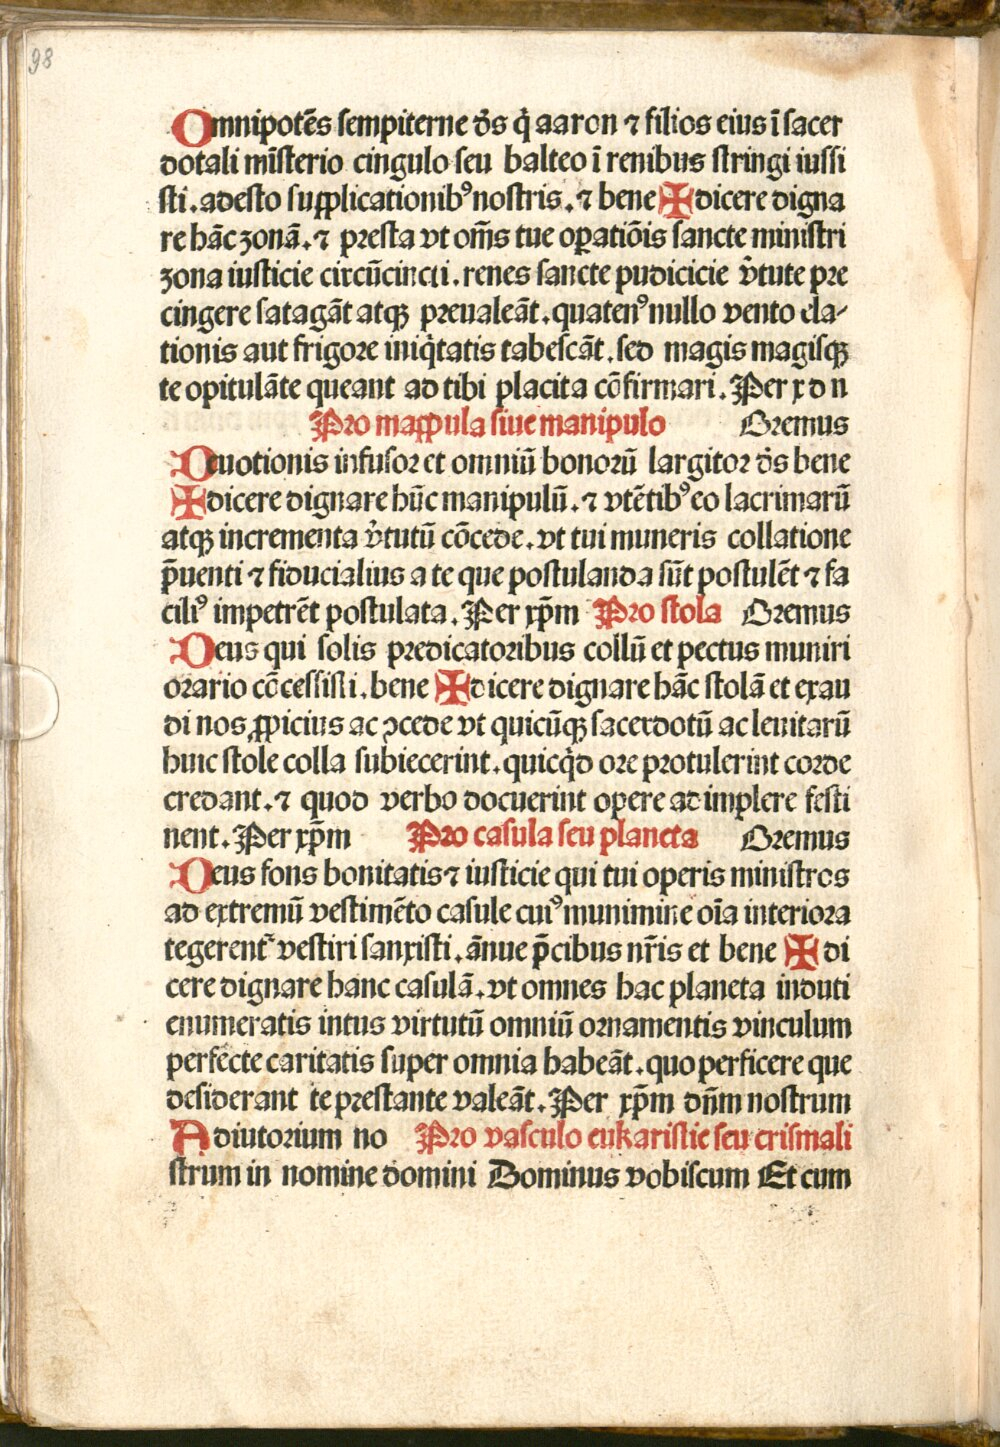 98
Omnipotēs sempiterne ds̄ q̇ aaron ⁊ filios eius ī sacer
dotali mīsterio cingulo seu balteo ī renibus stringi iussi
sti. adesto supplicationibꝰ nostris. ⁊ bene ✠ dicere digna
re hāc zonā. ⁊ presta vt oēs tue opatiōis sancte ministri
zona iusticie circūcincti. renes sancte pudicicie v̇tute pre
cingere satagāt atqꝫ preualeāt. quatenꝰ nullo vento ela-
tionis aut frigore iniq̇tatis tabescāt. sed magis magisqꝫ
te opitulāte queant ad tibi placita cōfirmari. Per x d n
Pro mappula siue manipulo Oremus
Deuotionis infusor et omniū bonorū largitor ds̄ bene
✠ dicere dignare hūc manipulū. ⁊ vtētibꝰ eo lacrimarū
atqꝫ incrementa v̇tutū cōcede. vt tui muneris collatione
p̄uenti ⁊ fiducialius a te que postulanda sūt postulēt ⁊ fa
ciliꝰ impetrēt postulata. Per xp̄m Pro stola Oremus
Deus qui solis predicatoribus collū et pectus muniri
orario cōcessisti. bene ✠ dicere dignare hāc stolā et exau
di nos ꝓpicius ac ↄcede vt quicūqꝫ sacerdotū ac leuitarū
huic stole colla subiecerint. quicq̇d ore protulerint corde
credant. ⁊ quod verbo docuerint opere adimplere festi
nent. Per xp̄m Pro casula seu planeta Oremus
Deus fons bonitatis ⁊ iusticie qui tui operis ministros
ad extremū vestimēto casule cuiꝰ munimine oīa interiora
tegerent᷑ vestiri sanxisti. ānue p̄cibus nr̄is et bene ✠ di
cere dignare hanc casulā. vt omnes hac planeta induti
enumeratis intus virtutū omniū ornamentis vinculum
perfecte caritatis super omnia habeāt. quo perficere que
desiderant te prestante valeāt. Per xp̄m dn̄m nostrum
Adiutorium no Pro vasculo eukaristie seu crismali
strum in nomine domini Dominus vobiscum Et cum